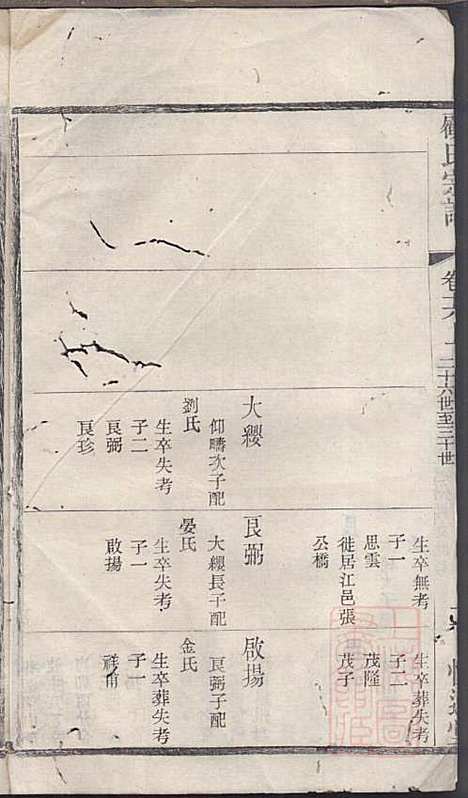 氏宗譜
卷六
二十六世至三十世
大纓
仰疇次子配
劉氏
生卒失考
子二
良弼
良珍
生卒無考
子一
思雲
徙居江邑張
公橋
良弼
大纓長子配
晏氏
生卒失考
子一
啟揚
生卒葬失考
子二
茂隆
茂子
啟揚
良弼子配
金氏
生卒葬失考
子一
祥甫